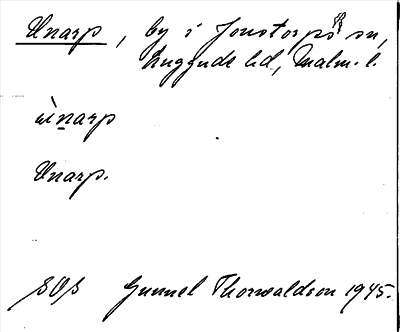 Unarp, by i Jonstorps sn,
Luggude hd, Malm. l.
ùnarp
Unarp.
SOS Gunnel Thorwaldson 1945.